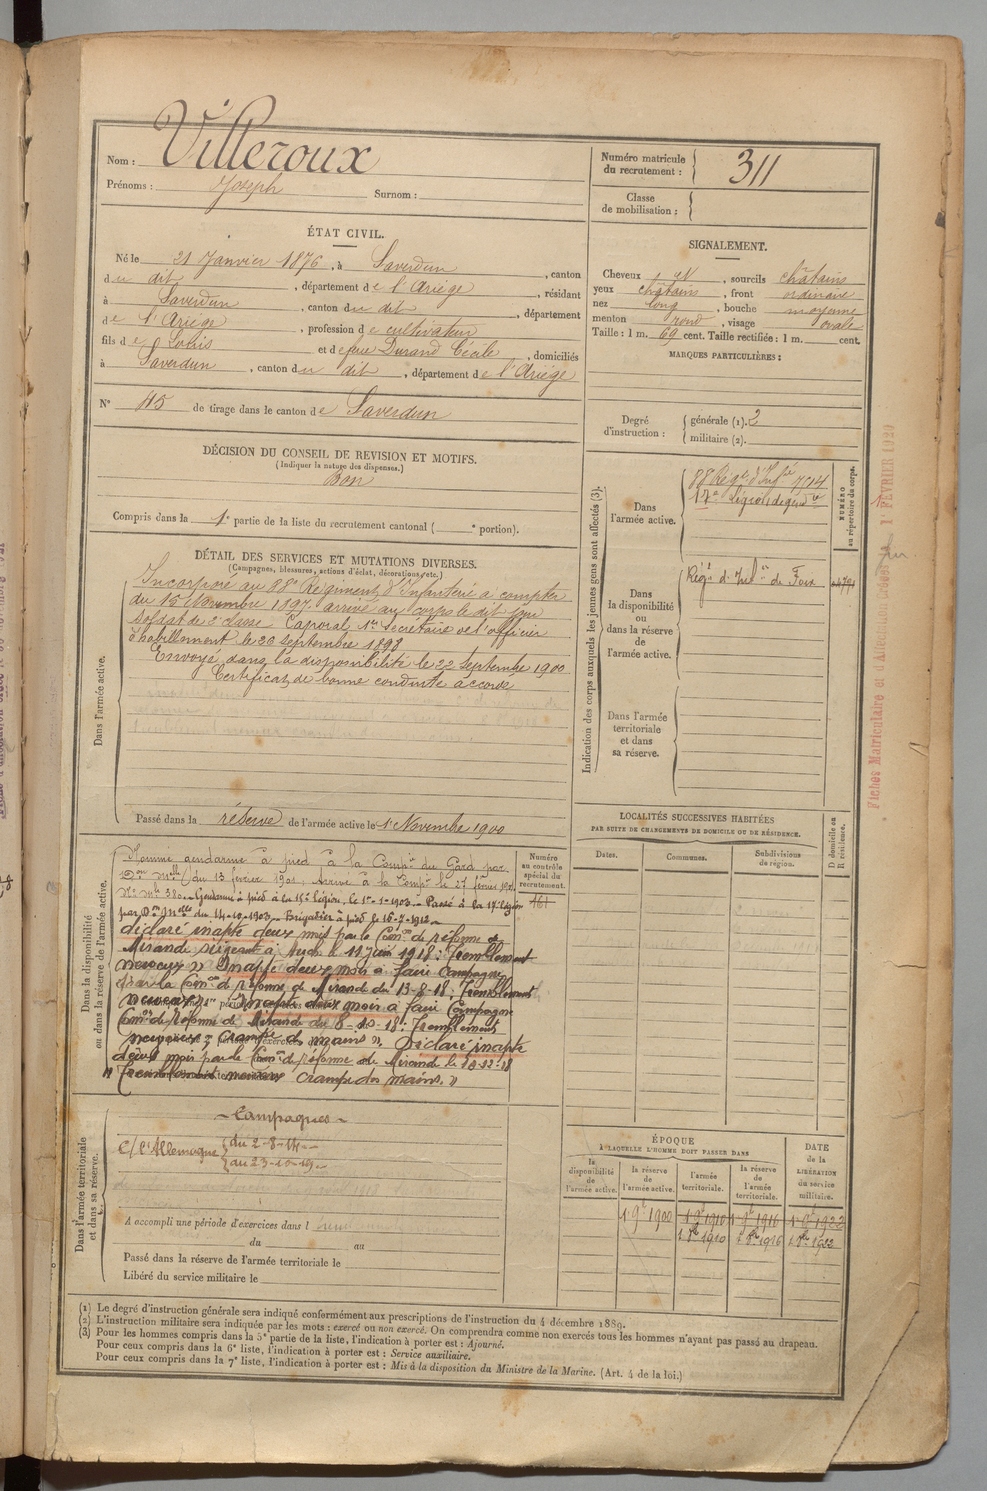 Nom : Villeroux
Prénoms : Joseph Surnom :
Numéro matricule du recrutement : 311
Classe de mobilisation :
ÉTAT CIVIL.
Né le 21 Janvier 1876, à Saverdun, canton
du dit, département de l'Ariège, résidant
à Saverdun, canton du dit, département
de l'Ariège, profession de cultivateur
fils de Louis et de feue Durand Cécile, domiciliés
à Saverdun, canton du dit, département de l'Ariège
N° 45 de tirage dans le canton de Saverdun
SIGNALEMENT.
Cheveux, sourcils châtains
yeux châtains, front ordinaire
nez long, bouche moyenne
menton rond, visage ovale
Taille : 1 m. 69 cent. Taille rectifiée : 1 m. cent.
MARQUES PARTICULIÈRES :
Degré d'instruction : générale (1). 2
militaire (2).
DÉCISION DU CONSEIL DE REVISION ET MOTIFS.
(Indiquer la nature des dispenses.)
Bon
Compris dans la 1e partie de la liste du recrutement cantonal ( e portion).
DÉTAIL DES SERVICES ET MUTATIONS DIVERSES.
(Campagnes, blessures, actions d'éclat, décorations, etc.)
Dans l'armée active.
Incorporé au 88e Régiment d'Infanterie à compter
du 15 Novembre 1897, arrivé au corps le dit jour
soldat de 2e classe. Caporal, 1er secrétaire de l'officier
d'habillement le 20 Septembre 1898
Envoyé dans la disponibilité le 22 Septembre 1900
Certificat de bonne conduite accordé
Passé dans la réserve de l'armée active le 1er Novembre 1900
Indication des corps auxquels les jeunes gens sont affectés (3).
Dans l'armée active.
88 Regt d'Infie 7514
17e Légion de gendie
NUMÉRO au répertoire du corps.
Dans la disponibilité ou dans la réserve de l'armée active.
Régt d'Infie de Foix
Dans l'armée territoriale et dans sa réserve.
Fiches Matriculaire et d'Affectation créées 1er FÉVRIER 1929
Dans la disponibilité ou dans la réserve de l'armée active.
Nommé gendarme à pied à la Compie du Gard par
Don Mlle du 13 février 1901, Arrivé à la Compie le 27 février 1901
Gendarme à pied à la 15e légion, le 1er-1-1903. Passé à la 17e légion
par Don Mlle du 14-10-1903. Brigadier à pied le 16-7-1912.
déclaré inapte deux mois par la Comon de réforme de
Mirande siégeant à Auch le 11 juin 1918 : Tremblement
nerveux » Inapte deux mois à faire Campagne
par la Comon de réforme de Mirande du 13-8-18 : Tremblement
nerveux, Inapte deux mois à faire Campagne
Comon de Réforme de Mirande du 8-10-18 : Tremblement
nerveux ; crampe des mains ». Déclaré inapte
deux mois par la Comon de réforme de Mirande le 10-12-18
" Tremblement nerveux crampe des mains. »
Numéro au contrôle spécial du recrutement.
161
LOCALITÉS SUCCESSIVES HABITÉES
PAR SUITE DE CHANGEMENTS DE DOMICILE OU DE RÉSIDENCE.
Dates. Communes. Subdivisions de région.
D domicile ou R résidence.
Dans l'armée territoriale et dans sa réserve.
Campagnes
C/ l'Allemagne du 2-8-14
au 23-10-19
A accompli une période d'exercices dans l
du au
Passé dans la réserve de l'armée territoriale le
Libéré du service militaire le
ÉPOQUE
À LAQUELLE L'HOMME DOIT PASSER DANS
la disponibilité de l'armée active.
la réserve de l'armée active.
l'armée territoriale.
la réserve de l'armée territoriale.
DATE de la LIBÉRATION du service militaire.
1 9e 1900 1 9e 1910 1 9e 1916 1 9e 1922
1 8bre 1910 1 8bre 1916 1 8bre 1922
(1) Le degré d'instruction générale sera indiqué conformément aux prescriptions de l'instruction du 4 décembre 1889.
(2) L'instruction militaire sera indiquée par les mots : exercé ou non exercé. On comprendra comme non exercés tous les hommes n'ayant pas passé au drapeau.
(3) Pour les hommes compris dans la 5e partie de la liste, l'indication à porter est : Ajourné.
Pour ceux compris dans la 6e liste, l'indication à porter est : Service auxiliaire.
Pour ceux compris dans la 7e liste, l'indication à porter est : Mis à la disposition du Ministre de la Marine. (Art. 4 de la loi.)